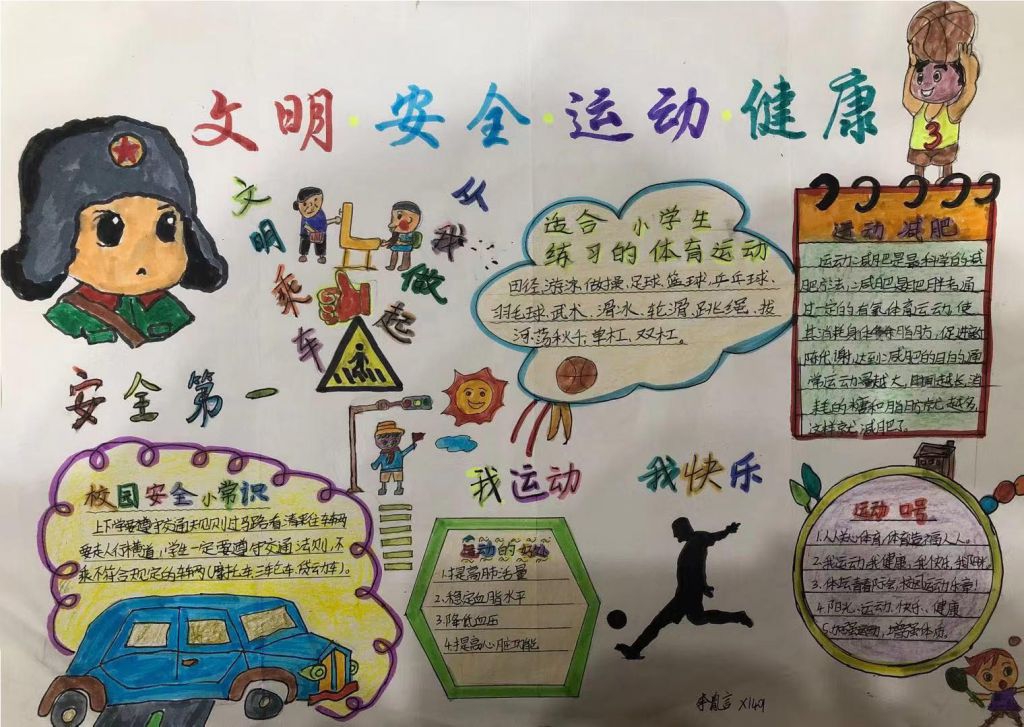 文明·安全·运动·健康
文明乘车
从我做起
安全第一
适合小学生
练习的体育运动
田径、游泳、做操、足球、篮球、乒乓球、
羽毛球、武术、滑冰、轮滑、跳绳、拔
河、荡秋千、单杠、双杠。
运动减肥
运动减肥是最科学的减
肥方法,减肥是把胖去通
过一定的有氧体育运动,使
其消耗身体脂肪,促进新
陈代谢,达到减肥的目的通
常运动量越大,时间越长,消
耗的糖和脂肪就越多,
这样就减肥了
3
校园安全小常识
上下学要遵守交通规则过马路看清来往车辆
要走人行横道,小学生一定要遵守交通法则,不
乘不符合规定的车辆(摩托车、三轮车、货动车)。
我运动 我快乐
运动的好处
1.提高肺活量
2.稳定血脂水平
3.降低血压
4.提高心脏功能
运动口号
1.人人关心体育,体育造福人人。
2.我运动,我健康,我快乐,我阳光。
3.体坛青春际会,校园运动乐章!
4.阳光、运动、快乐、健康
5.加强运动,增强体质。
李 言 X149